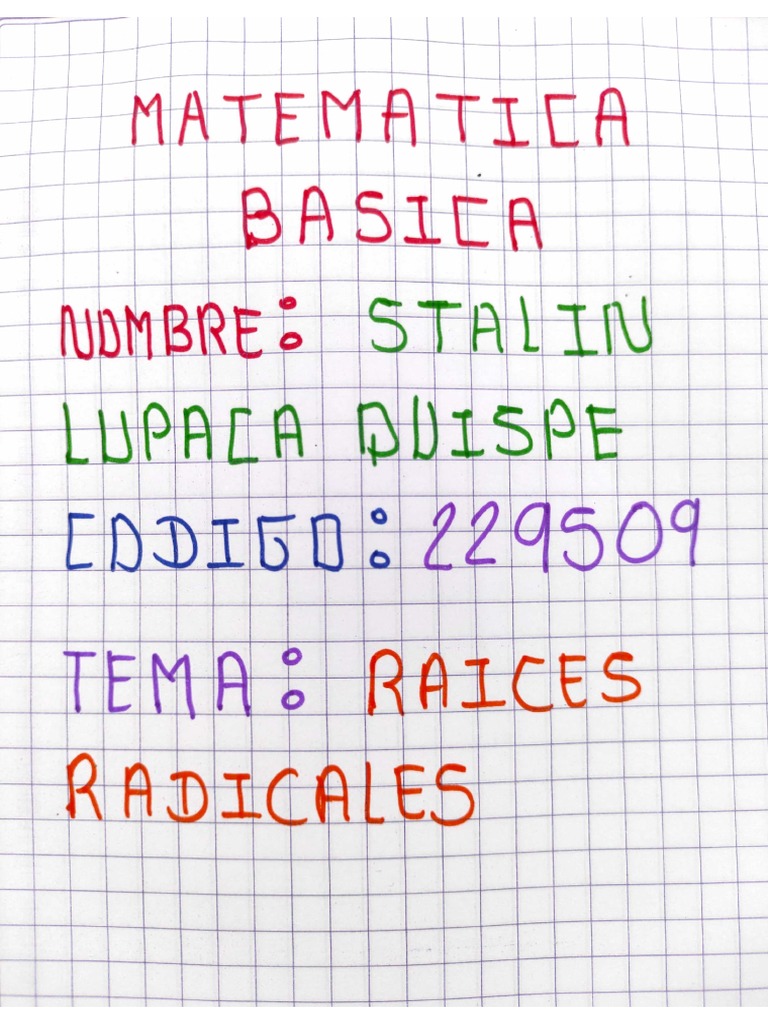 MATEMATICA
BASICA
NOMBRE: STALIN
LUPACA QUISPE
CODIGO: 229509
TEMA: RAICES
RADICALES